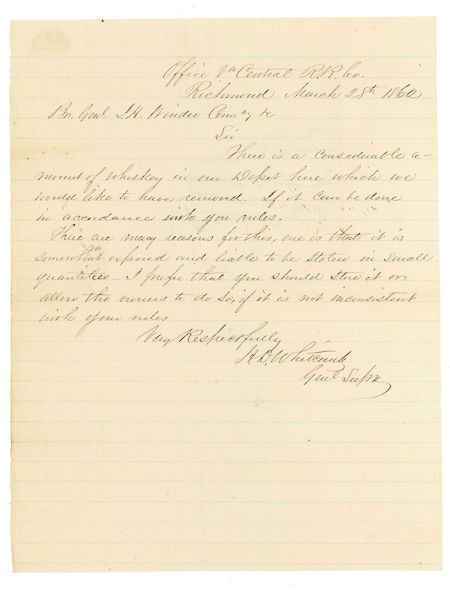 Office Va Central R.R. Co.
Richmond March 28th 1862
Brig Genl J. H. Winder Comdg &c
Sir
There is a considerable a-
mount of whiskey in our Depot here which we
would like to have removed. If it can be done
in accordance with you rules.
There are many reasons for this, one is that it is
somewhat exposed and liable to be stolen in small
quantities - I prefer that you should store it or
allow the owners to do so, if it is not inconsistent
with your rules
Very Respectfully
H. D. Whitcomb
Genl Supt